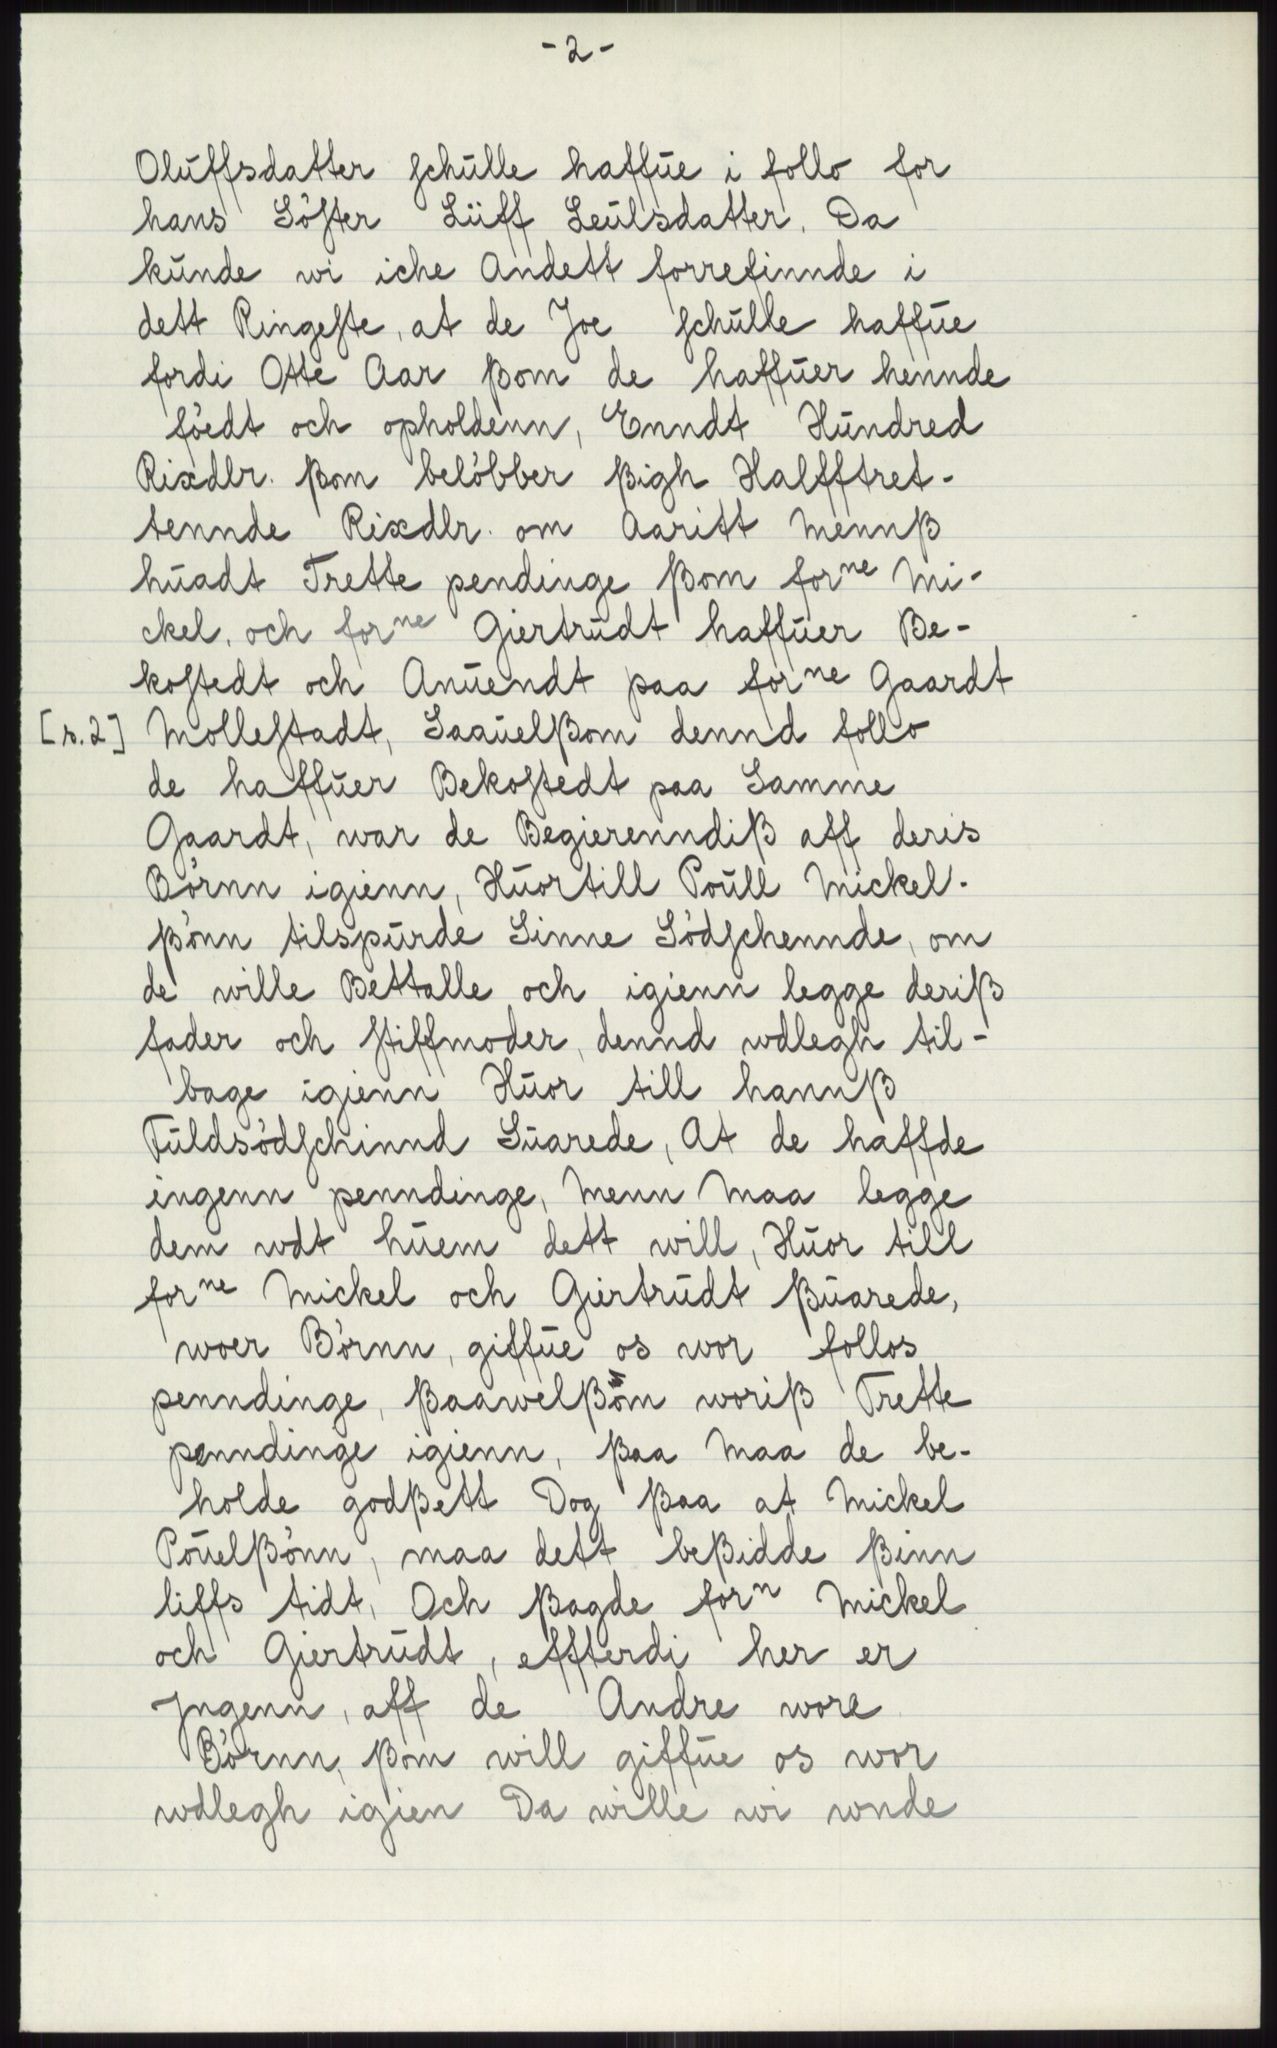 -2-
Oluffsdatter schulle haffue i follo for
hans Söster Lüff Leulsdatter. Da
kunde wi iche Andett forrefinnde i
dett Ringeste, at de Joe schulle haffue
fordi Otte Aar ßom de haffuer hennde
föedt och opholdenn, Enndt Hundred
Rixdlr. ßom belöbber ßigh Halfftret-
tennde Rixdlr. om Aaritt Mennß
huadt Trette pendinge ßom forne Mi-
ckel. och forne Giertrudt haffuer Be-
kostedt och Anuendt paa forne Gaardt
[s.2] Mollestadt, Saauelßom dennd follo
de haffuer Bekostedt paa Samme
Gaardt, war de Begierenndiß aff deris
Börnn igienn, Huortill Poull Mickel-
ßönn tilspurde Sinne Södschennde, om
de wille Bettalle och igienn legge deriß
fader och stiffmoder, dennd wdlegh til-
bage igienn Huor till hannß
Fuldsödschinnd Suarede, At de haffde
ingenn penndinge, Menn Maa legge
dem wdt huem dett will, Huor till
forne Mickel och Giertrudt ßuarede,
woer Börnn, giffue os wor follos
penndinge, ßaawelßom woriß Trette
penndinge igienn, ßaa Maa de be-
holde godßett Dog ßaa at Mickel
Pouelßönn, maa dett beßidde ßinn
liffs tidt, Och ßagde forn Mickel
och Giertrudt, effterdi her er
Jngenn, aff de Andre wore
Börnn, ßom will giffue os wor
wdlegh igien Da wille wi wnde